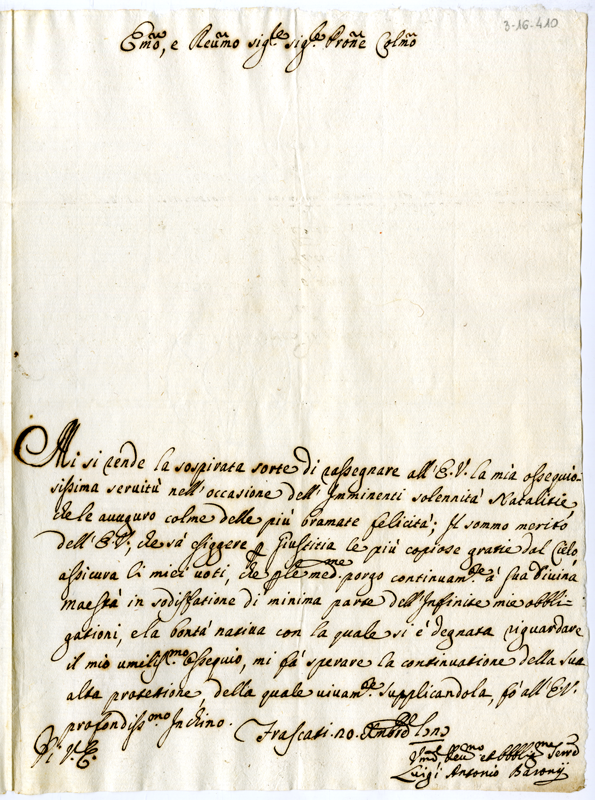 3-16-410
Emo, e Reumo sigre. sigre. Prone Colmo
Mi si rende la sospirata sorte di rassegnare all'E.V. la mia ossequio-
sissima seruitù nell'occasione dell'Imminenti solennità Natalitie,
che le auguro colme delle più bramate felicità; Il sommo merito
dell'E.V., che sà esiggere p Giustitia le più copiose gratie dal Cielo
assicura li miei uoti, che med.me porgo continuam.te à sua Diuina
Maestà in sodisfatione di minima parte dell'Infinite mie obbli-
gationi, e la bontà natiua con la quale si è degnata riguardare
il mio umiliss.mo Ossequio, mi fà sperare la continuatione della sua
alta protetione della quale uiuam.te supplicandola, fò all'E.V.
profondiss.mo Inchino. Frascati. 20.
Di V.E.
Luigi Antonio Baronij